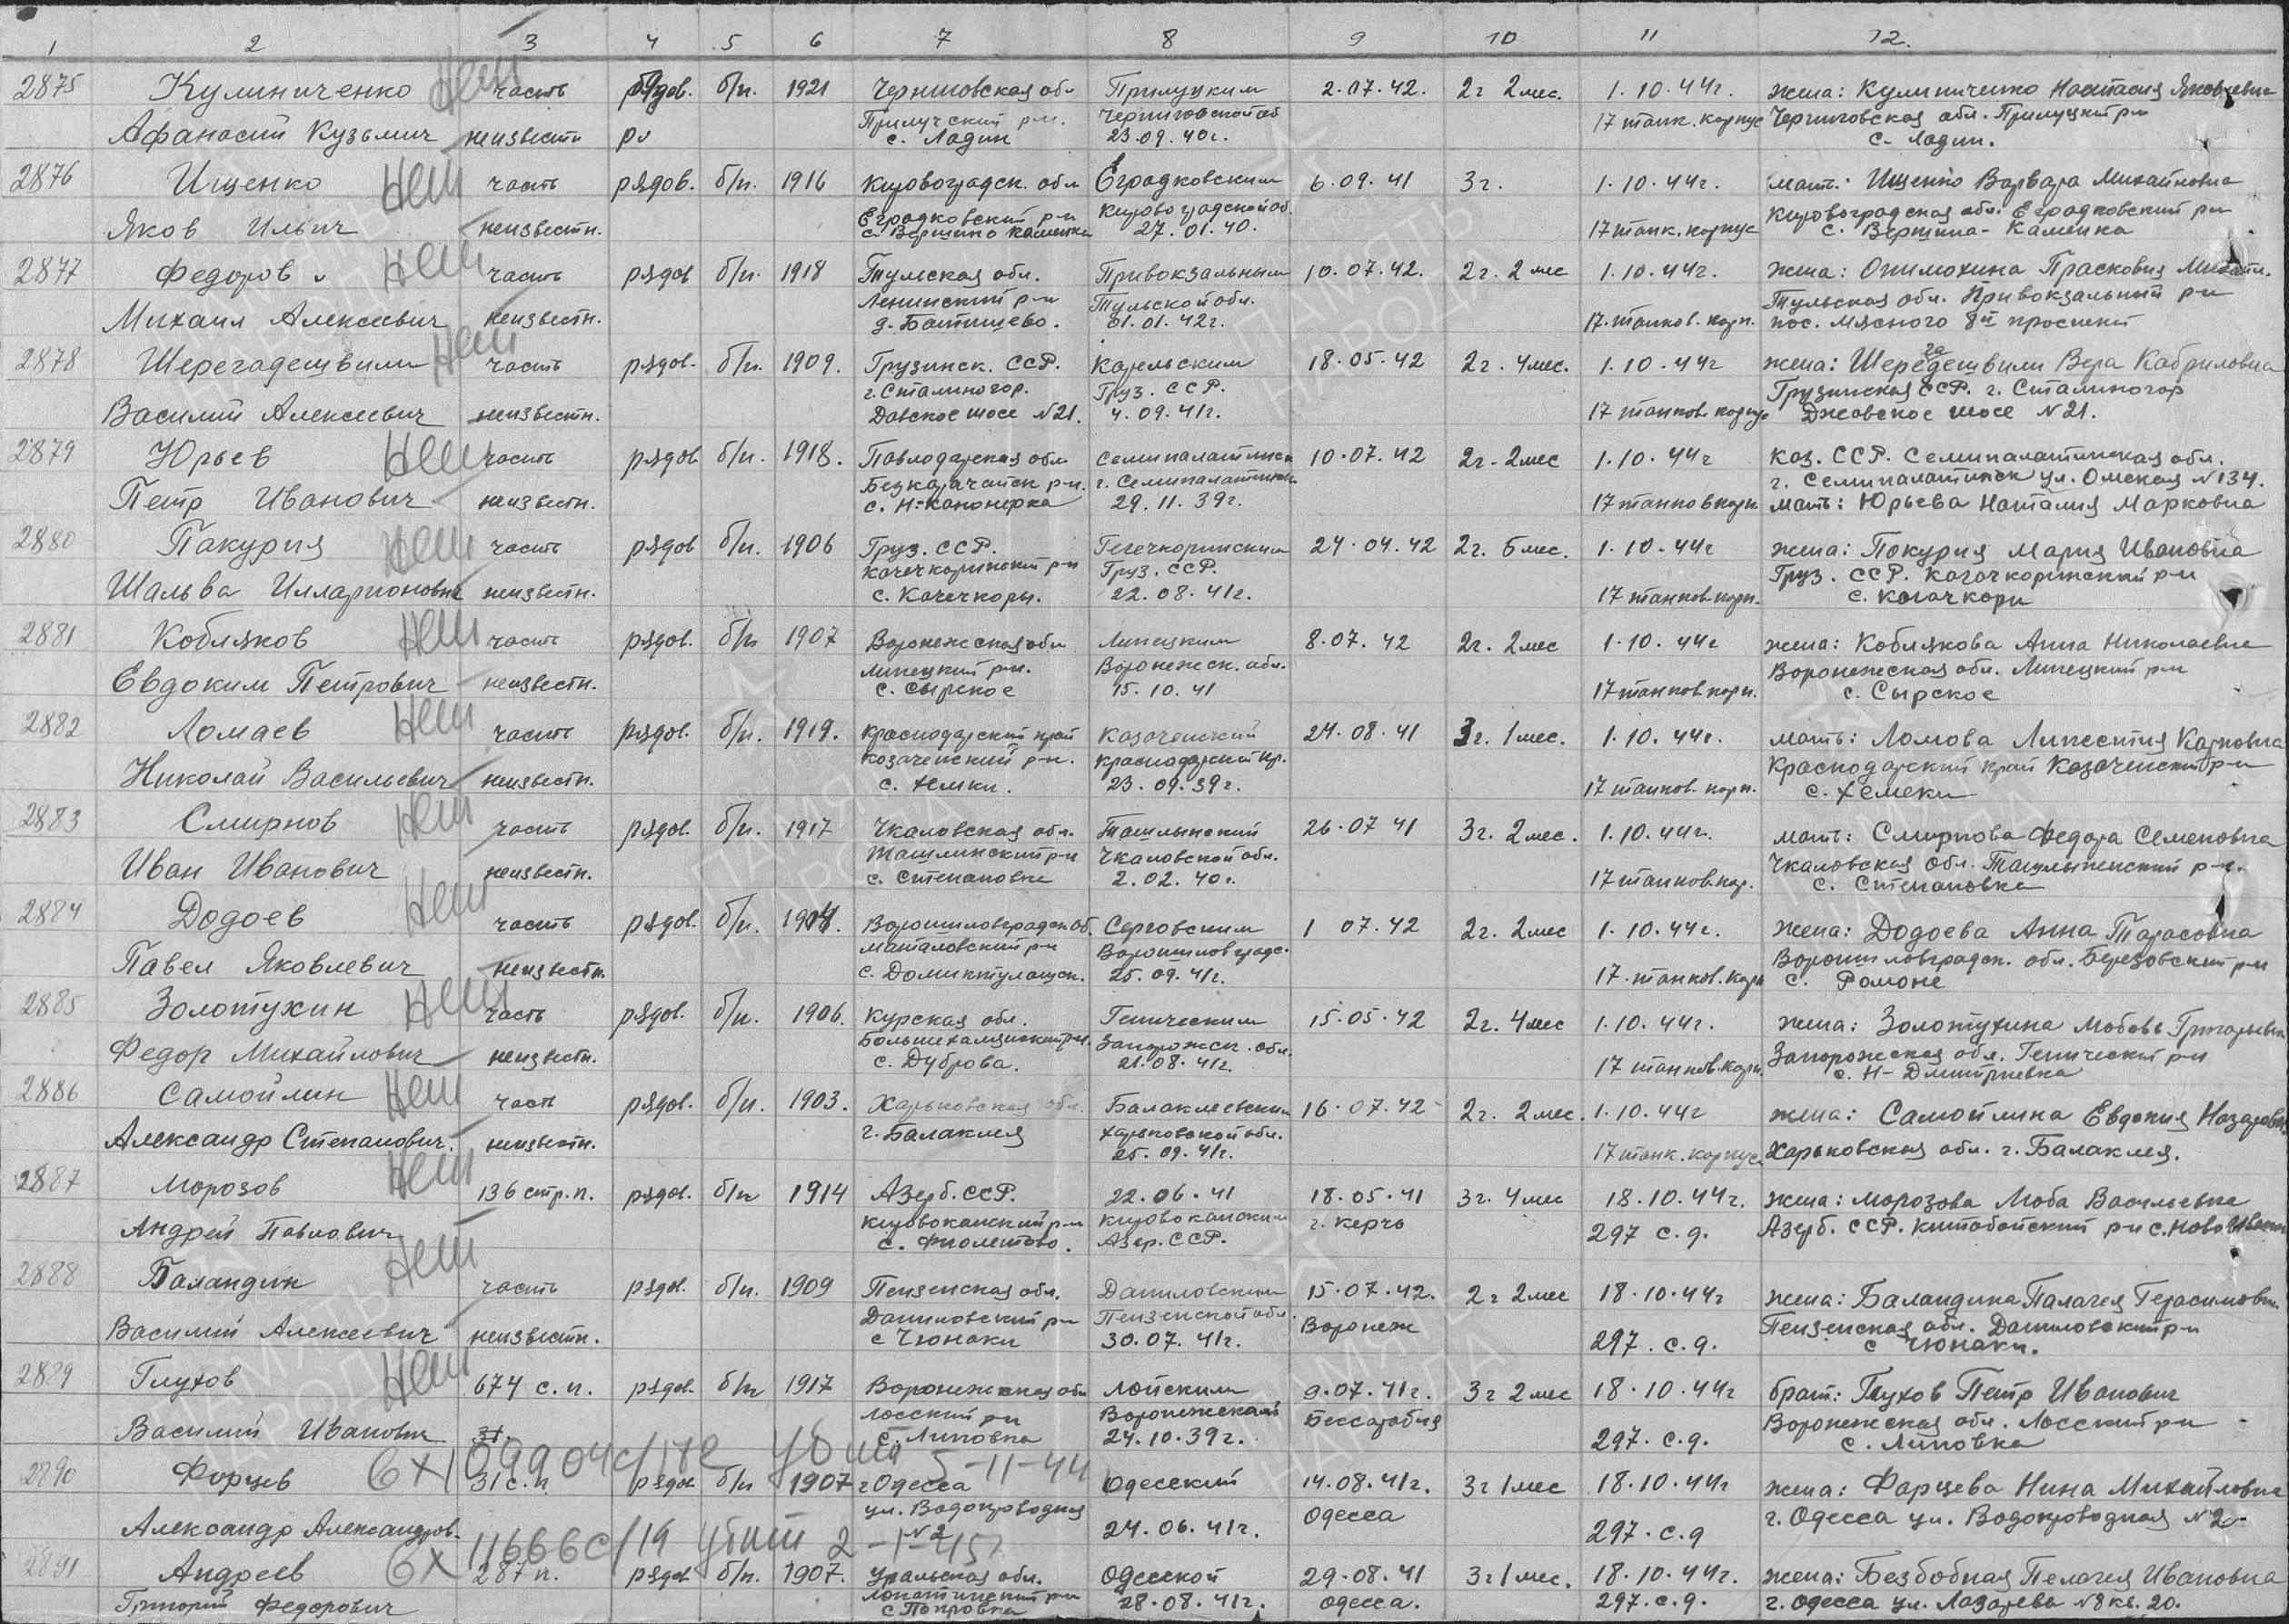 1 2 3 4 5 6 7 8 9 10 11 12.
2875 Кулиниченко Нет часть рядов. б/п. 1921 Черниговская обл Прилуцким 2.07.42. 2г 2мес. 1.10.44г. жена: Кулиниченко Настасия Яковлевна
Афанасий Кузьмич неизвестн Прилуцкий р-н. Черниговской об 17 танк. корпус Черниговская обл. Прилуцкий р-н
с. Ладин 23.09.40г. с. Ладин.
2876 Ищенко Нет часть рядов. б/п. 1916 Кировоградск. обл Еградковским 6.09.41 3г. 1.10.44г. мать: Ищенко Варвара Михайловна
Яков Ильич неизвестн. Еградковский р-н Кировоградской об. 17 танк. корпус Кировоградская обл. Еградковский р-н
с. Вершино Каменка 27.01.40. с. Вершина-Каменка
2877 Федоров Нет часть рядов б/п. 1918 Тульская обл. Привокзальным 10.07.42. 2г. 2 мес 1.10.44г. жена: Прасковия Михайл.
Ленинский р-н Тульской обл. Тульская обл. Привокзальный р-н
Михаил Алексеевич неизвестн. д. Батищево. 01.01.42г. 17. танков. корп. пос. Мясного 8й проспект
2878 Шерегадешвили Нет часть рядов. б/п. 1909. Грузинск. ССР. Карельским 18.05.42 2г. 4мес. 1.10.44г жена: Шерегадешвили Вера Кабриловна
г. Сталиногор. Груз. ССР. Грузинская ССР. г. Сталиногор
Василий Алексеевич неизвестн. Давское шосе №21. 4.09.41г. 17 танков. корпус Джавское шосе №21.
2879 Юрьев Нет часть рядов б/п. 1918. Павлодарская обл Семипалатинск 10.07.42 2г. 2мес 1.10.44г Каз. ССР. Семипалатинская обл.
Бескарагайск р-н. г. Семипалатинск г. Семипалатинск ул. Омская №134.
Петр Иванович неизвестн. с. Н-Канонерка 29.11.39г. 17 танков корп. мать: Юрьева Наталия Марковна
2880 Пакурия Нет часть рядов б/п. 1906 Груз. ССР. Гегечкоринским 24.04.42 2г. 5мес. 1.10.44г жена: Покурия Мария Ивановна
Качечкоринский р-н Груз. ССР. Груз. ССР. Кагочкоринский р-н
Шальва Илларионович неизвестн. с. Качечкоры. 22.08.41г. 17 танков. корп. с. Кагочкори
2881 Кобляков Нет часть рядов. б/п 1907 Воронежская обл Липецким 8.07.42 2г. 2мес 1.10.44г жена: Коблякова Анна Николаевна
Липецкий р-н. Воронежск. обл. Воронежская обл. Липецкий р-н
Евдоким Петрович неизвестн. с. Сырское 15.10.41 17 танков корп. с. Сырское
2882 Ломаев Нет часть рядов. б/п. 1919. Краснодарский край Казаченский 24.08.41 3г. 1мес. 1.10.44г. мать: Ломова Карповна
Козаченский р-н. Краснодарский кр. Краснодарский край Козаченский р-н
Николай Васильевич неизвестн. с. Хемки. 23.09.39г. 17 танков. корп. с. Хемеки
2883 Смирнов Нет часть рядов. б/п. 1917 Чкаловская обл. Ташлынский 26.07 41 3г. 2мес. 1.10.44г. мать: Смирнова Федора Семеновна
Ташлинский р-н Чкаловской обл. Чкаловская обл. Ташлынский р-н.
Иван Иванович неизвестн. с. Степановка 2.02.40г. 17 танков. кор. с. Степановка
2884 Додоев Нет часть рядов. б/п. 1904. Ворошиловградск об. Серговским 1 07.42 2г. 2мес 1.10.44г. жена: Додоева Анна Тарасовна
Ворошиловградс. Ворошиловградск. обл. Березовский р-н
Павел Яковлевич неизвестн. 25.09.41г. 17. танков. корп с. Ромоне
2885 Золотухин Нет часть рядов. б/п. 1906. Курская обл. Геническим 15.05.42 2г. 4мес 1.10.44г. жена: Золотухина Любовь Григорьевна
Запорожск. обл. Запорожская обл. Генический р-н
Федор Михайлович неизвестн. с. Дуброва. 21.08.41г. 17 танков. корп. с. Н-Дмитриевка
2886 Самойлин Нет част рядов. б/п. 1903. Харьковская обл. Балаклеевским 16.07.42 2г. 2мес. 1.10.44г жена: Самойлина Евдокия Назаровн
г. Балаклея Харьковской обл.
Александр Степанович. неизвестн. 25.09.41г. 17 танк. корпус Харьковская обл. г. Балаклея.
2887 Морозов Нет 136 стр. п. рядов. б/п 1914 Азерб. ССР. 22.06.41 18.05.41 3г. 4мес 18.10.44г. жена: Морозова Люба Васильевна
Андрей Павлович Кировоканский р-н Кировоканским г. Керчь 297 с.д. Азерб. ССР. Китабайский р-н с. Ново Иван
с. Фиолетово. Азер. ССР.
2888 Баландин Нет часть рядов. б/п. 1909 Пензенская обл. Даниловским 15.07.42. 2г 2мес 18.10.44г жена: Баландина Палагея Герасимовн.
Даниловский р-н Пензенской обл. Воронеж Пензенская обл. Даниловский р-н
Василий Алексеевич неизвестн. с Чюнаки 30.07.41г. 297. с.д. с Чюнаки.
2889 Глухов Нет 674 с.п. рядов. б/п 1917 Воронежская обл Лойским 9.07.41г. 3г 2мес 18.10.44г брат: Глухов Петр Иванович
Лосский р-н Воронежской Бессарабия Воронежская обл. Лосский р-н
Василий Иванович с. Липовка 24.10.39г. 297. с.д. с. Липовка
6х109904с/ убит 5-11-44
2890 Форцев 31 с.п. рядов б/п 1907 г Одесса Одесский 14.08.41г. 3г 1мес 18.10.44г жена: Фарцева Нина Михайловна
ул. Водопроводная Одесса г. Одесса ул. Водопроводная №2
Александр Александров. №2 24.06.41г. 297. с.д
6х 11666с/19 убит 2-1-45г
2891 Андреев 287 п. рядов б/п. 1907. Уральская обл. Одесской 29.08.41 3г 1мес. 18.10.44г. жена: Безбобная Пелагея Ивановна
Григорий Федорович с Покровка 28.08.41г. Одесса. 297. с.д. г. Одесса ул. Лазарева №8 кв. 20.
ПАМЯТЬ НАРОДА